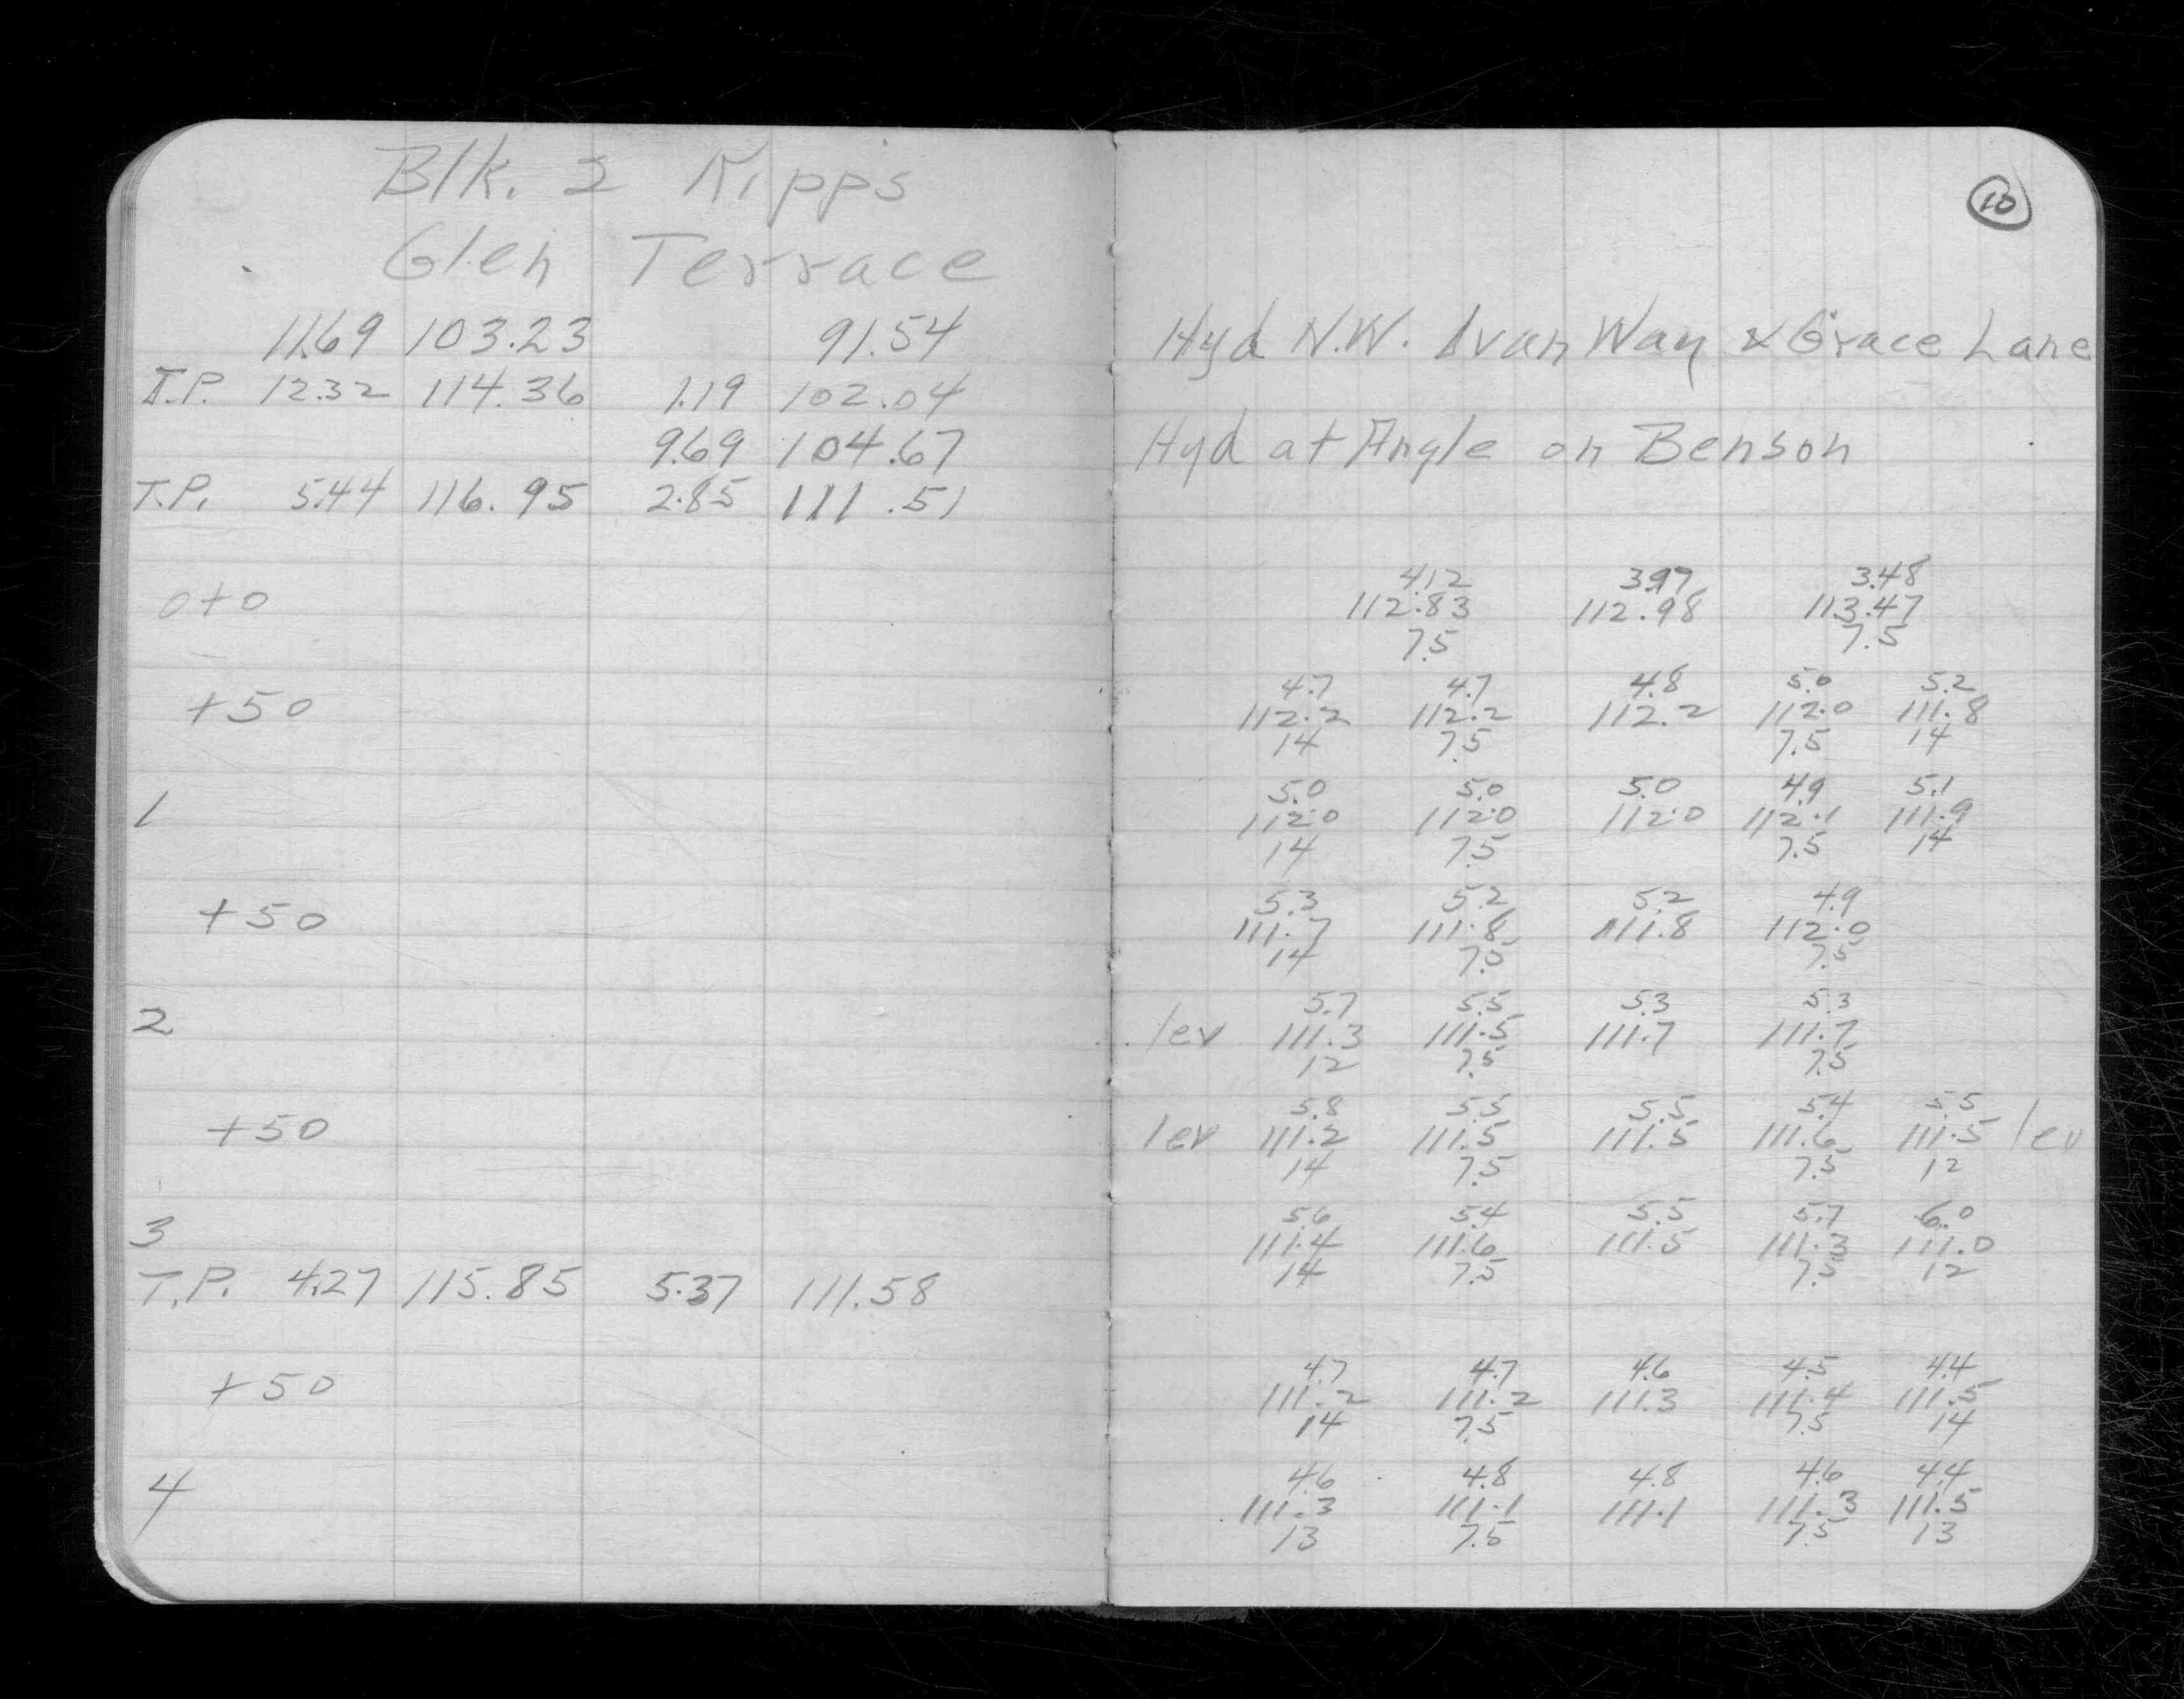 Blk. 2 Kipps
Glen Terrace
11.69 103.23 91.54
T.P. 12.32 114.36 1.19 102.04
9.69 104.67
T.P. 5.44 116.95 2.85 111.51
0+0
+50
1
+50
2
+50
3
T.P. 4.27 115.85 5.37 111.58
+50
4
10
Hyd N.W. Ivan Way & Grace Lane
Hyd at Angle on Benson
4.12 3.97 3.48
112.83 112.98 113.47
7.5 7.5
4.7 4.7 4.8 5.0 5.2
112.2 112.2 112.2 112.0 111.8
14 7.5 7.5 14
5.0 5.0 5.0 4.9 5.1
112.0 112.0 112.0 112.1 111.9
14 7.5 7.5 14
5.3 5.2 5.2 4.9
111.7 111.8 111.8 112.0
14 7.5 7.5
5.7 5.5 5.3 5.3
lev 111.3 111.5 111.7 111.7
12 7.5 7.5
5.8 5.5 5.5 5.4 5.5
lev 111.2 111.5 111.5 111.6 111.5 lev
14 7.5 7.5 12
5.6 5.4 5.5 5.7 6.0
111.4 111.6 111.5 111.3 111.0
14 7.5 7.5 12
4.7 4.7 4.6 4.5 4.4
111.2 111.2 111.3 111.4 111.5
14 7.5 7.5 14
4.6 4.8 4.8 4.6 4.4
111.3 111.1 111.1 111.3 111.5
13 7.5 7.5 13